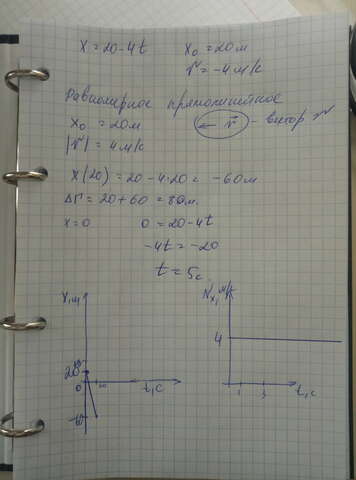 x = 20 - 4t x₀ = 20 м
v = -4 м/с
Равномерное прямолинейное
x₀ = 20 м ← v⃗ - вектор v
|v⃗| = 4 м/с
x(20) = 20 - 4·20 = -60 м
ΔΓ = 20 + 60 = 80 м.
x = 0 0 = 20 - 4t
-4t = -20
t = 5с
x, м vₓ, м/с
20 4
0 20 t, с 1 3 t, с
-60